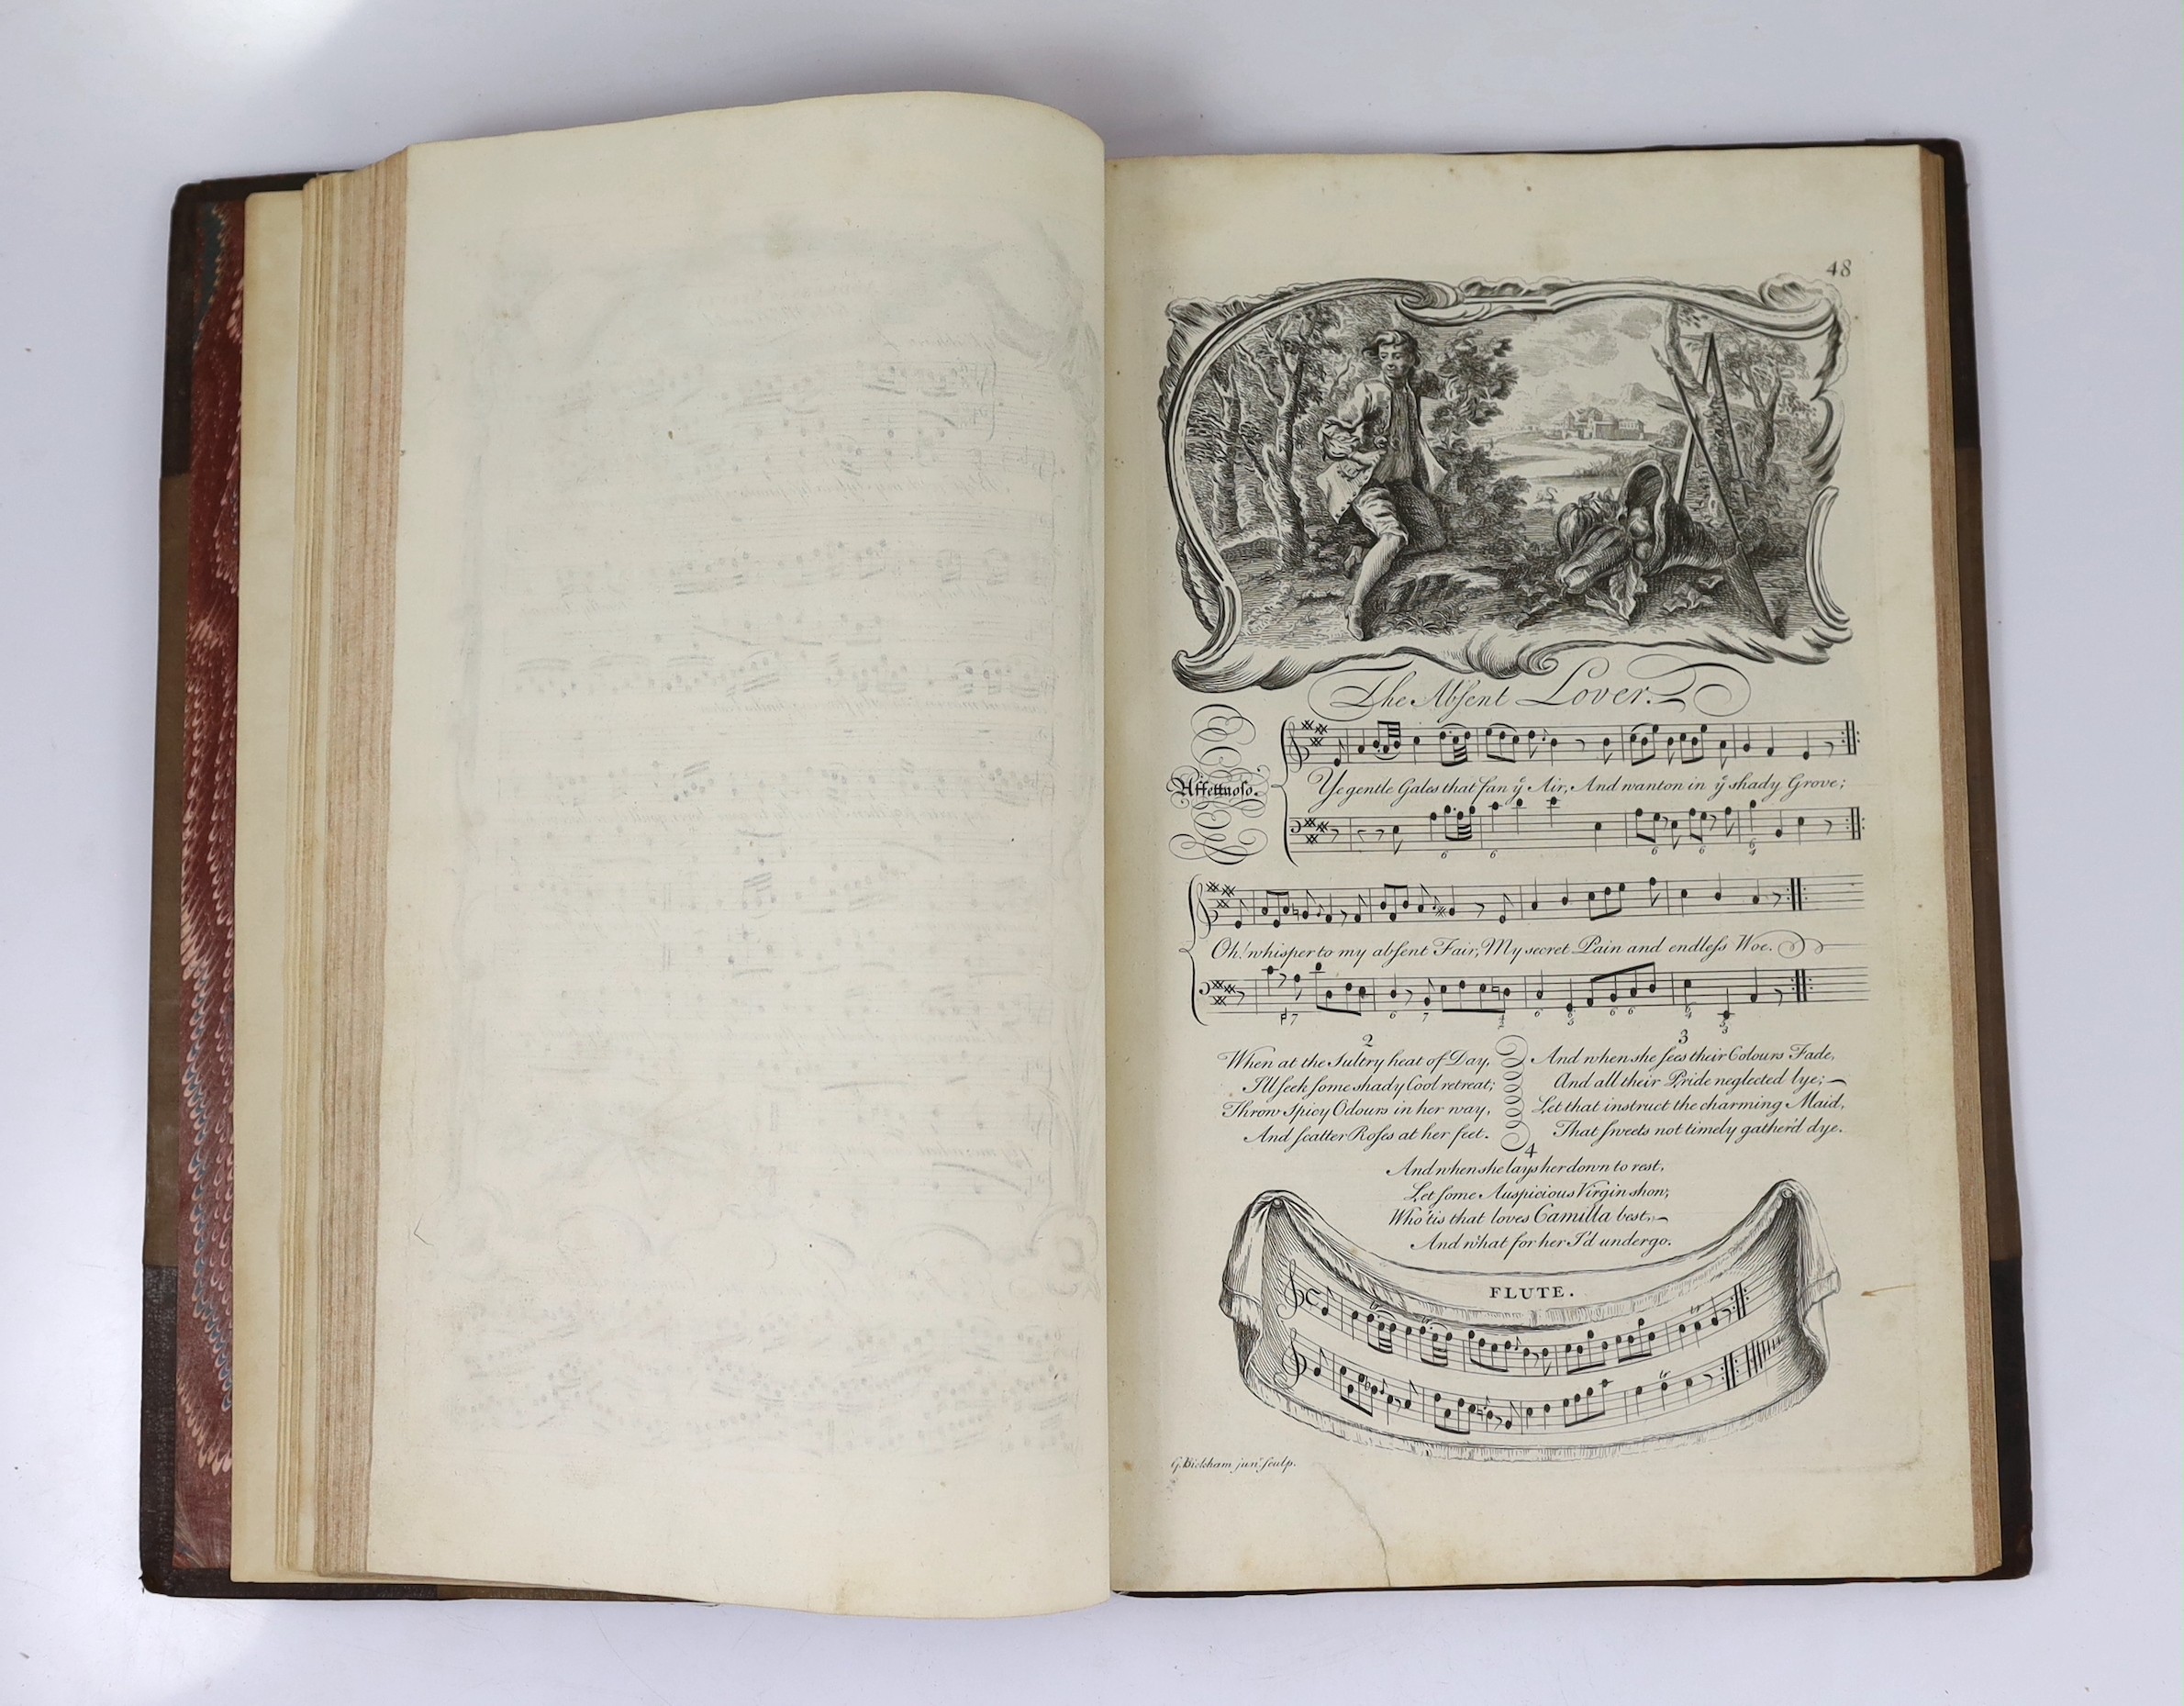 48
The Abſent Lover.
Affettuoſo.
Ye gentle Gales that fan yͤ Air, And wanton in yͤ shady Grove;
Oh! whisper to my abſent Fair, My secret Pain and endleſs Woe.
2
When at the Sultry heat of Day,
I'll ſeek ſome shady Cool retreat;
Throw Spicy Odours in her way,
And ſcatter Roſes at her feet.
3
And when she ſees their Colours Fade,
And all their Pride neglected lye;
Let that instruct the charming Maid,
That ſweets not timely gather'd dye.
4
And when she lays her down to rest,
Let ſome Auspicious Virgin show;
Who 'tis that loves Camilla best,
And what for her I'd undergo.
FLUTE.
G. Bickham junʳ. ſculp.